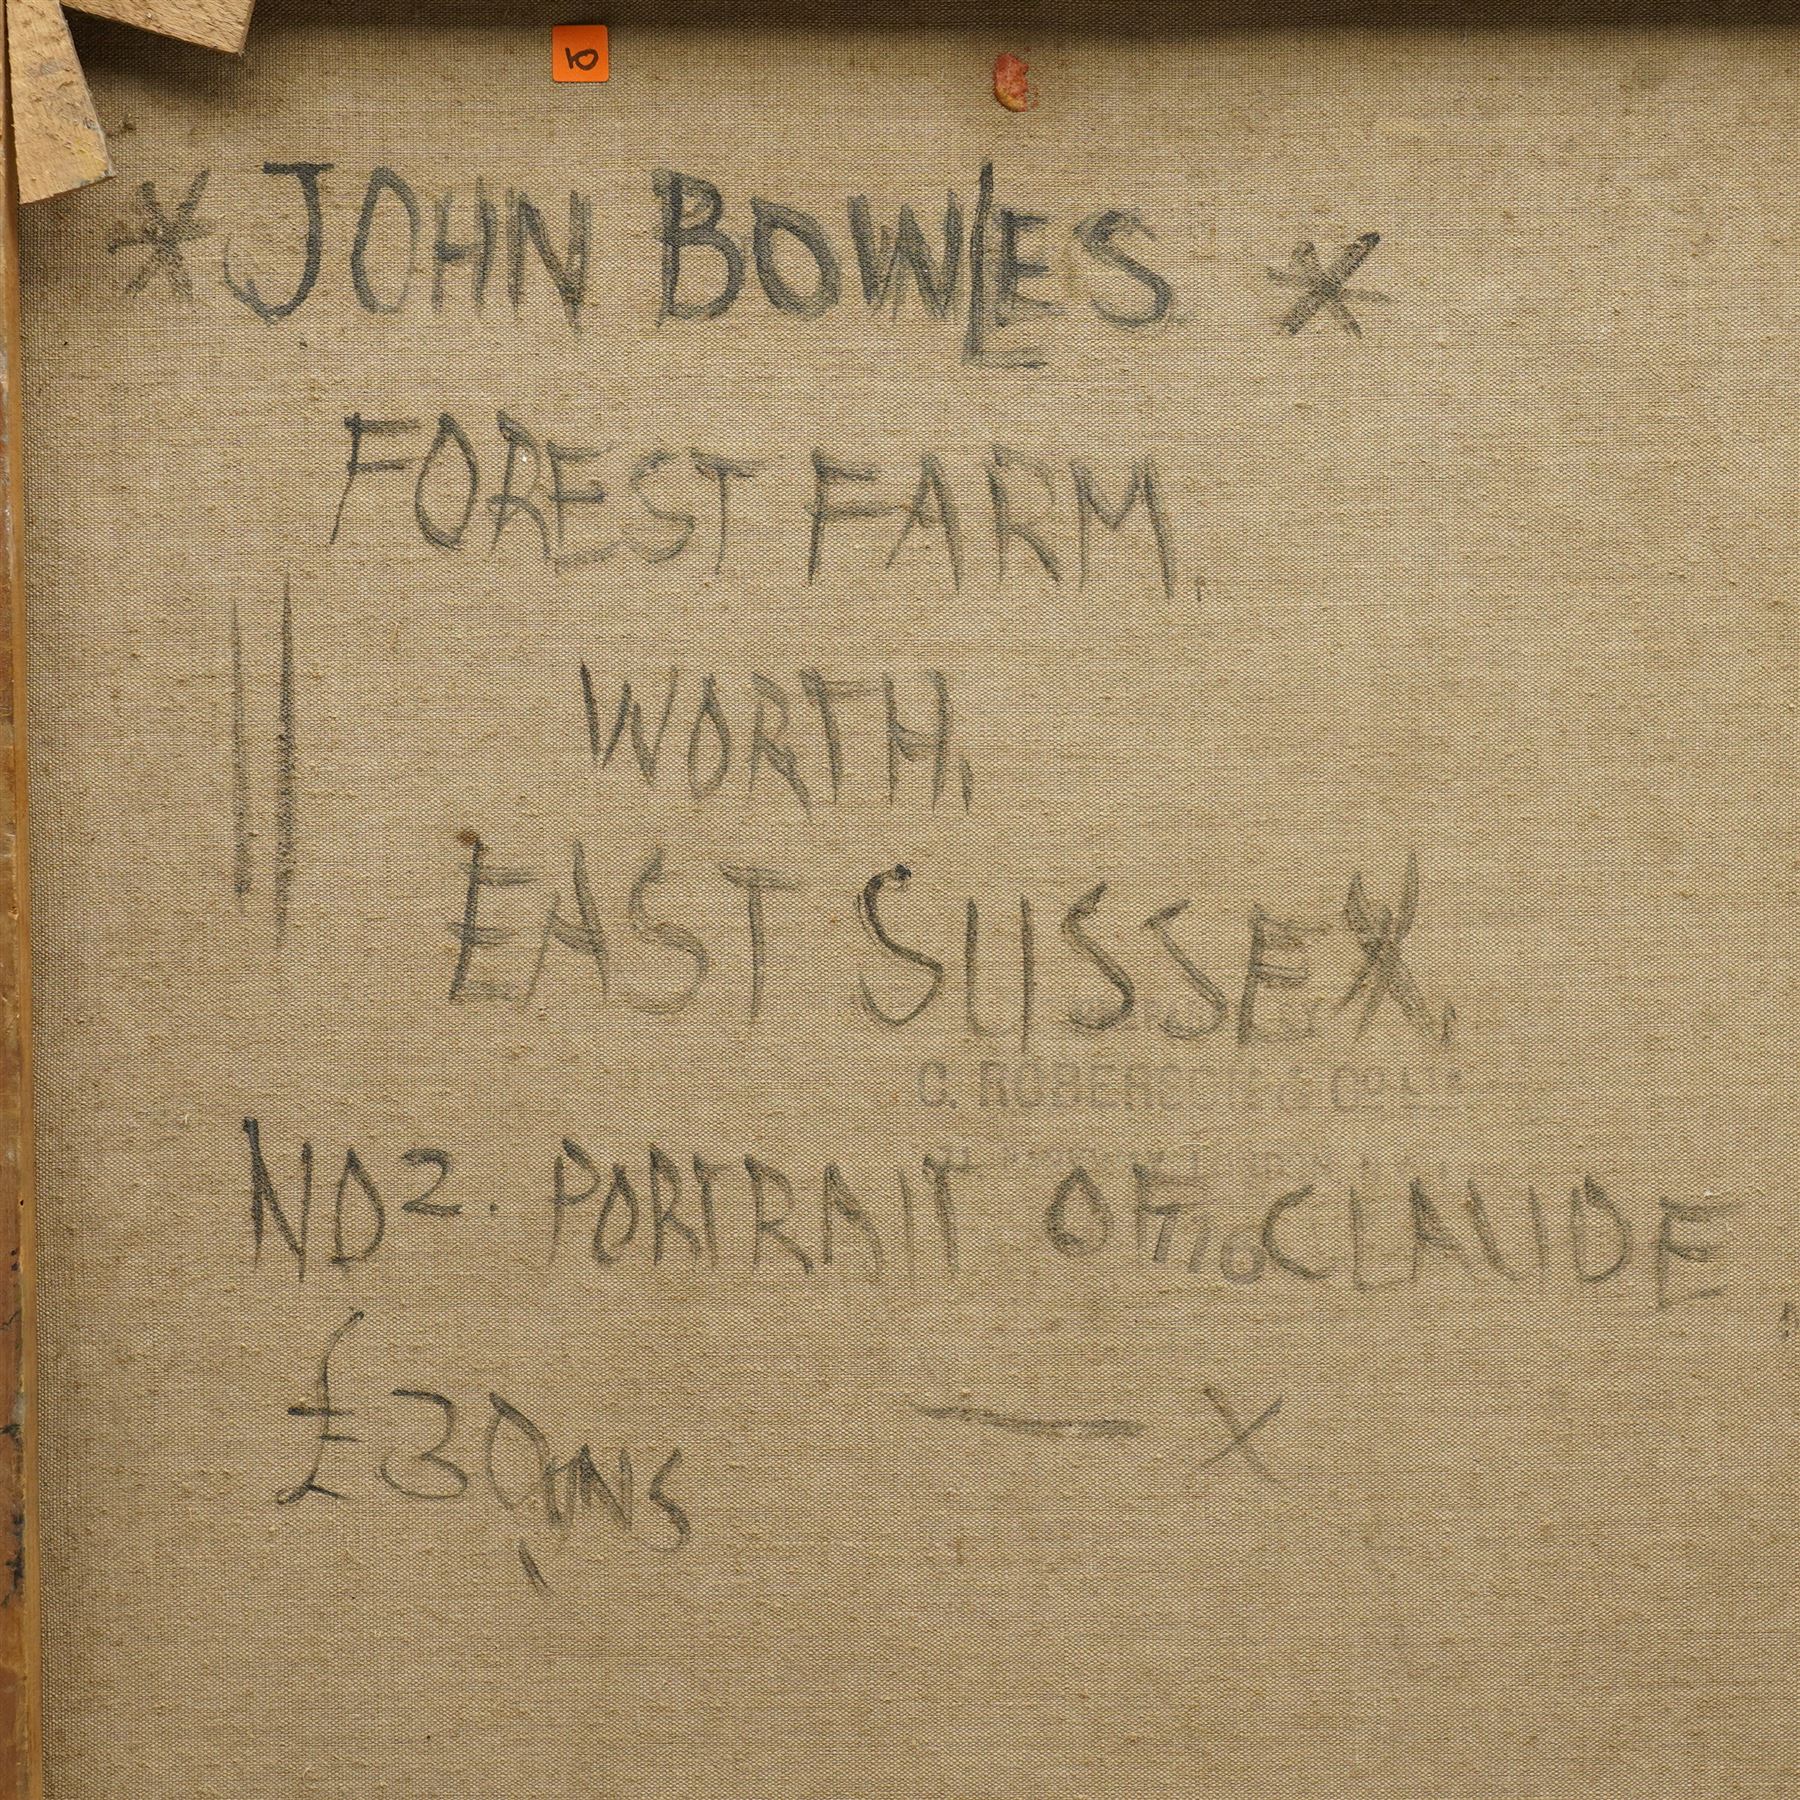 * JOHN BOWLES *
FOREST FARM.
WORTH.
EAST SUSSEX.
C. ROBERSON & CO LTD
NO 2. PORTRAIT OF CLAUDE
116
£30 GNS — X